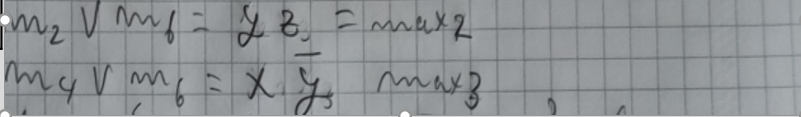 m₂ V m₆ = y z̅, = max2
m₄ V m₆ = x y̅, max3